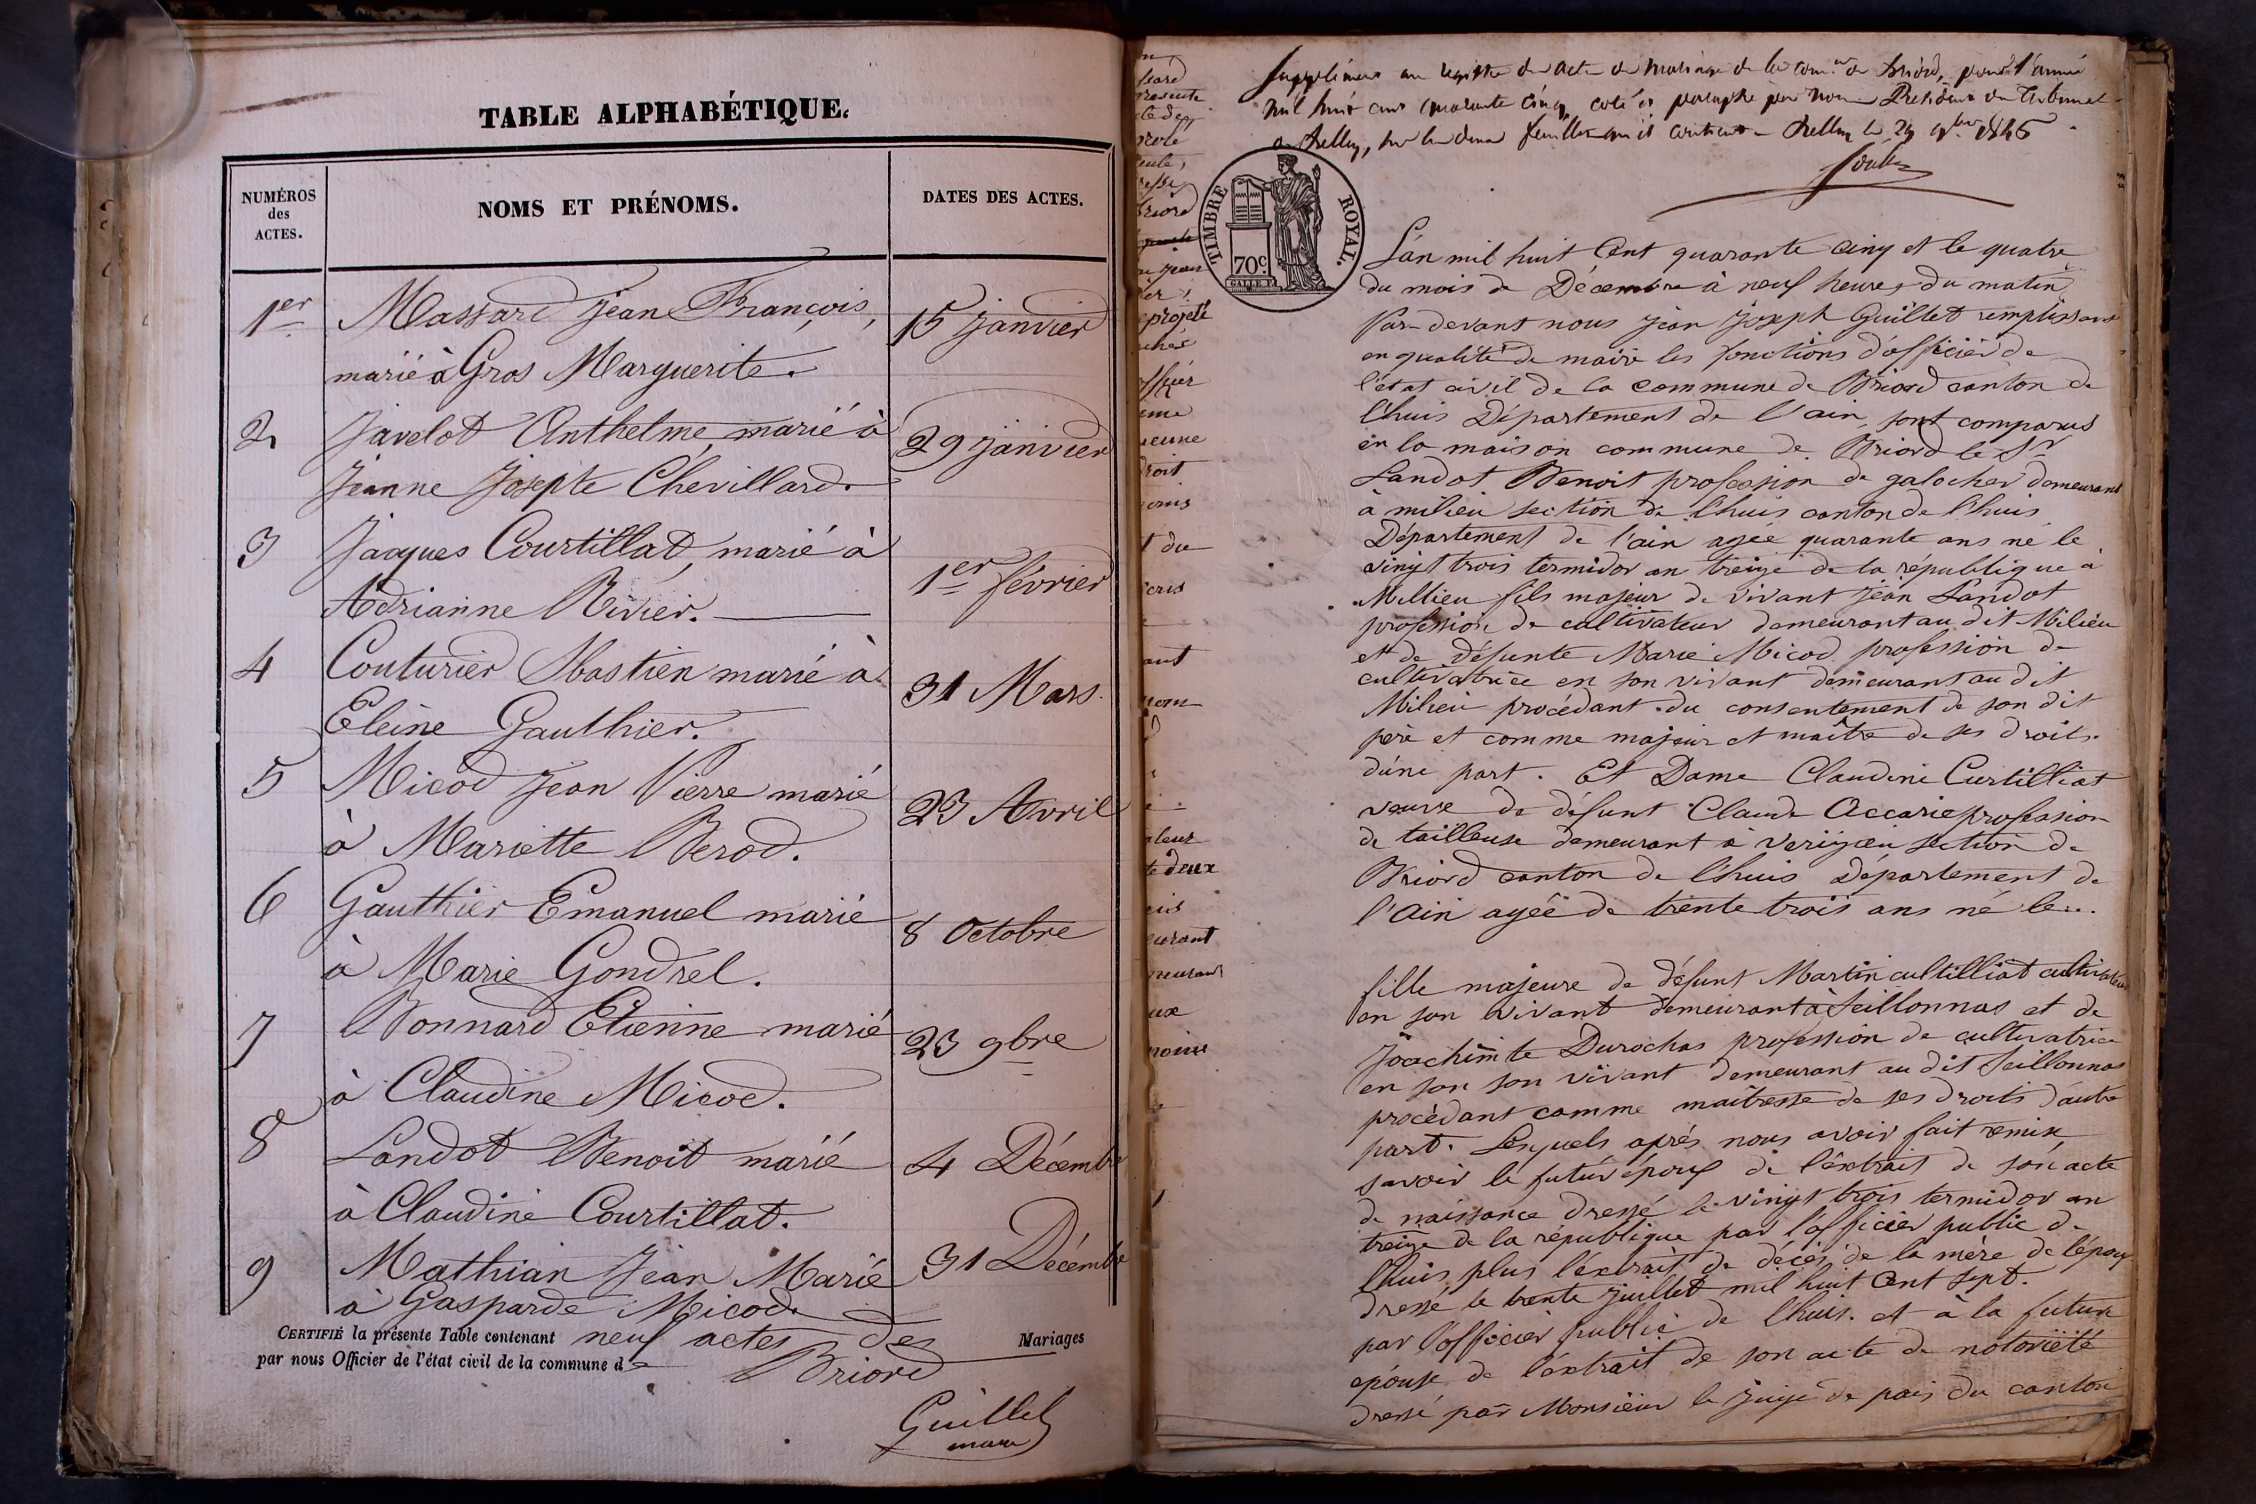 TABLE ALPHABÉTIQUE.
NUMÉROS
des
ACTES.
NOMS ET PRÉNOMS.
DATES DES ACTES.
1er Massard Jean François,
marié à Gros Marguerite.
15 janvier
2 Javelot Anthelme, marié à
Jeanne Josepte Chevillard.
29 janvier
3 Jacques Courtillat, marié à
Adrianne Rivier.
1er février
4 Couturier Sbastien marié à
Eleine Gauthier.
31 Mars.
5 Micod Jean Pierre marié
à Mariette Berod.
23 Avril
6 Gauthier Emanuel marié
à Marie Gondrel.
8 Octobre
7 Bonnard Etienne marié
à Claudine Micod.
23 9bre
8 Landot Benoit marié
à Claudine Courtillat.
4 Décembre
9 Mathian Jean Marié
à Gasparde Micod.
31 Décembre
CERTIFIÉ la présente Table contenant neuf actes des Mariages
par nous Officier de l'état civil de la commune de Briord
Guillet
maire
Supplément au registre des actes de mariage de la com.ne de Briord, pour l'année
mil huit cent quarante cinq, coté et paraphé par nous Président du Tribunal
de Belley, sur les deux feuillets qu'il contient. Belley le 29 9bre 1845
TIMBRE ROYAL.
70c.
L'án mil huit Cent quarante cinq et le quatre
du mois de Décembre à neuf heures du matin
Par-devant nous Jean Joseph Guillet remplissant
en qualité de maire les fonctions d'officier de
l'état civil de la commune de Briord canton de
l'huis Département de l'ain, sont comparus
en la maison commune de Briord le Sr
Landot Benoit profession de galocher demeurant
à milieu section de l'huis canton de l'huis
Département de l'ain agée quarante ans né le
vingt trois termidor an treize de la république à
Millieu fils majeur de vivant jean Landot
profession de cultivateur demeurant au dit Milieu
et de défunte Marie Micod profession de
cultivatrice en son vivant demeurant au dit
Milieu procédant du consentement de son dit
père et comme majeur et maître de ses droits.
d'une part. Et Dame Claudine Curtilliat
veuve de défunt Claude Accarie profession
de tailleuse demeurant à verizieu section de
Briord canton de l'huis Département de
l'Ain agée de trente trois ans né le...
fille majeure de défunt Martin cultilliat cultivateur
en son vivant demeurant à Seillonnas et de
Joachimte Durochas profession de cultivatrice
en son son vivant demeurant au dit Seillonnas
procèdant comme maitresse de ses droits d'autre
part. Lesquels aprés nous avoir fait remise
savoir le futur époux de l'éxtrait de són acte
de naissance dressé le vingt trois termidor an
treize de la république par l'officier public de
l'huis plus l'éxtrait de décès de la mère de l'époux
dressé le trente juillet mil huit Cent sept.
par l'officier public de l'huis. et à la future
epóuse de l'éxtrait de son acte de notoriété
dressé par Monsieur le juge de paix du canton